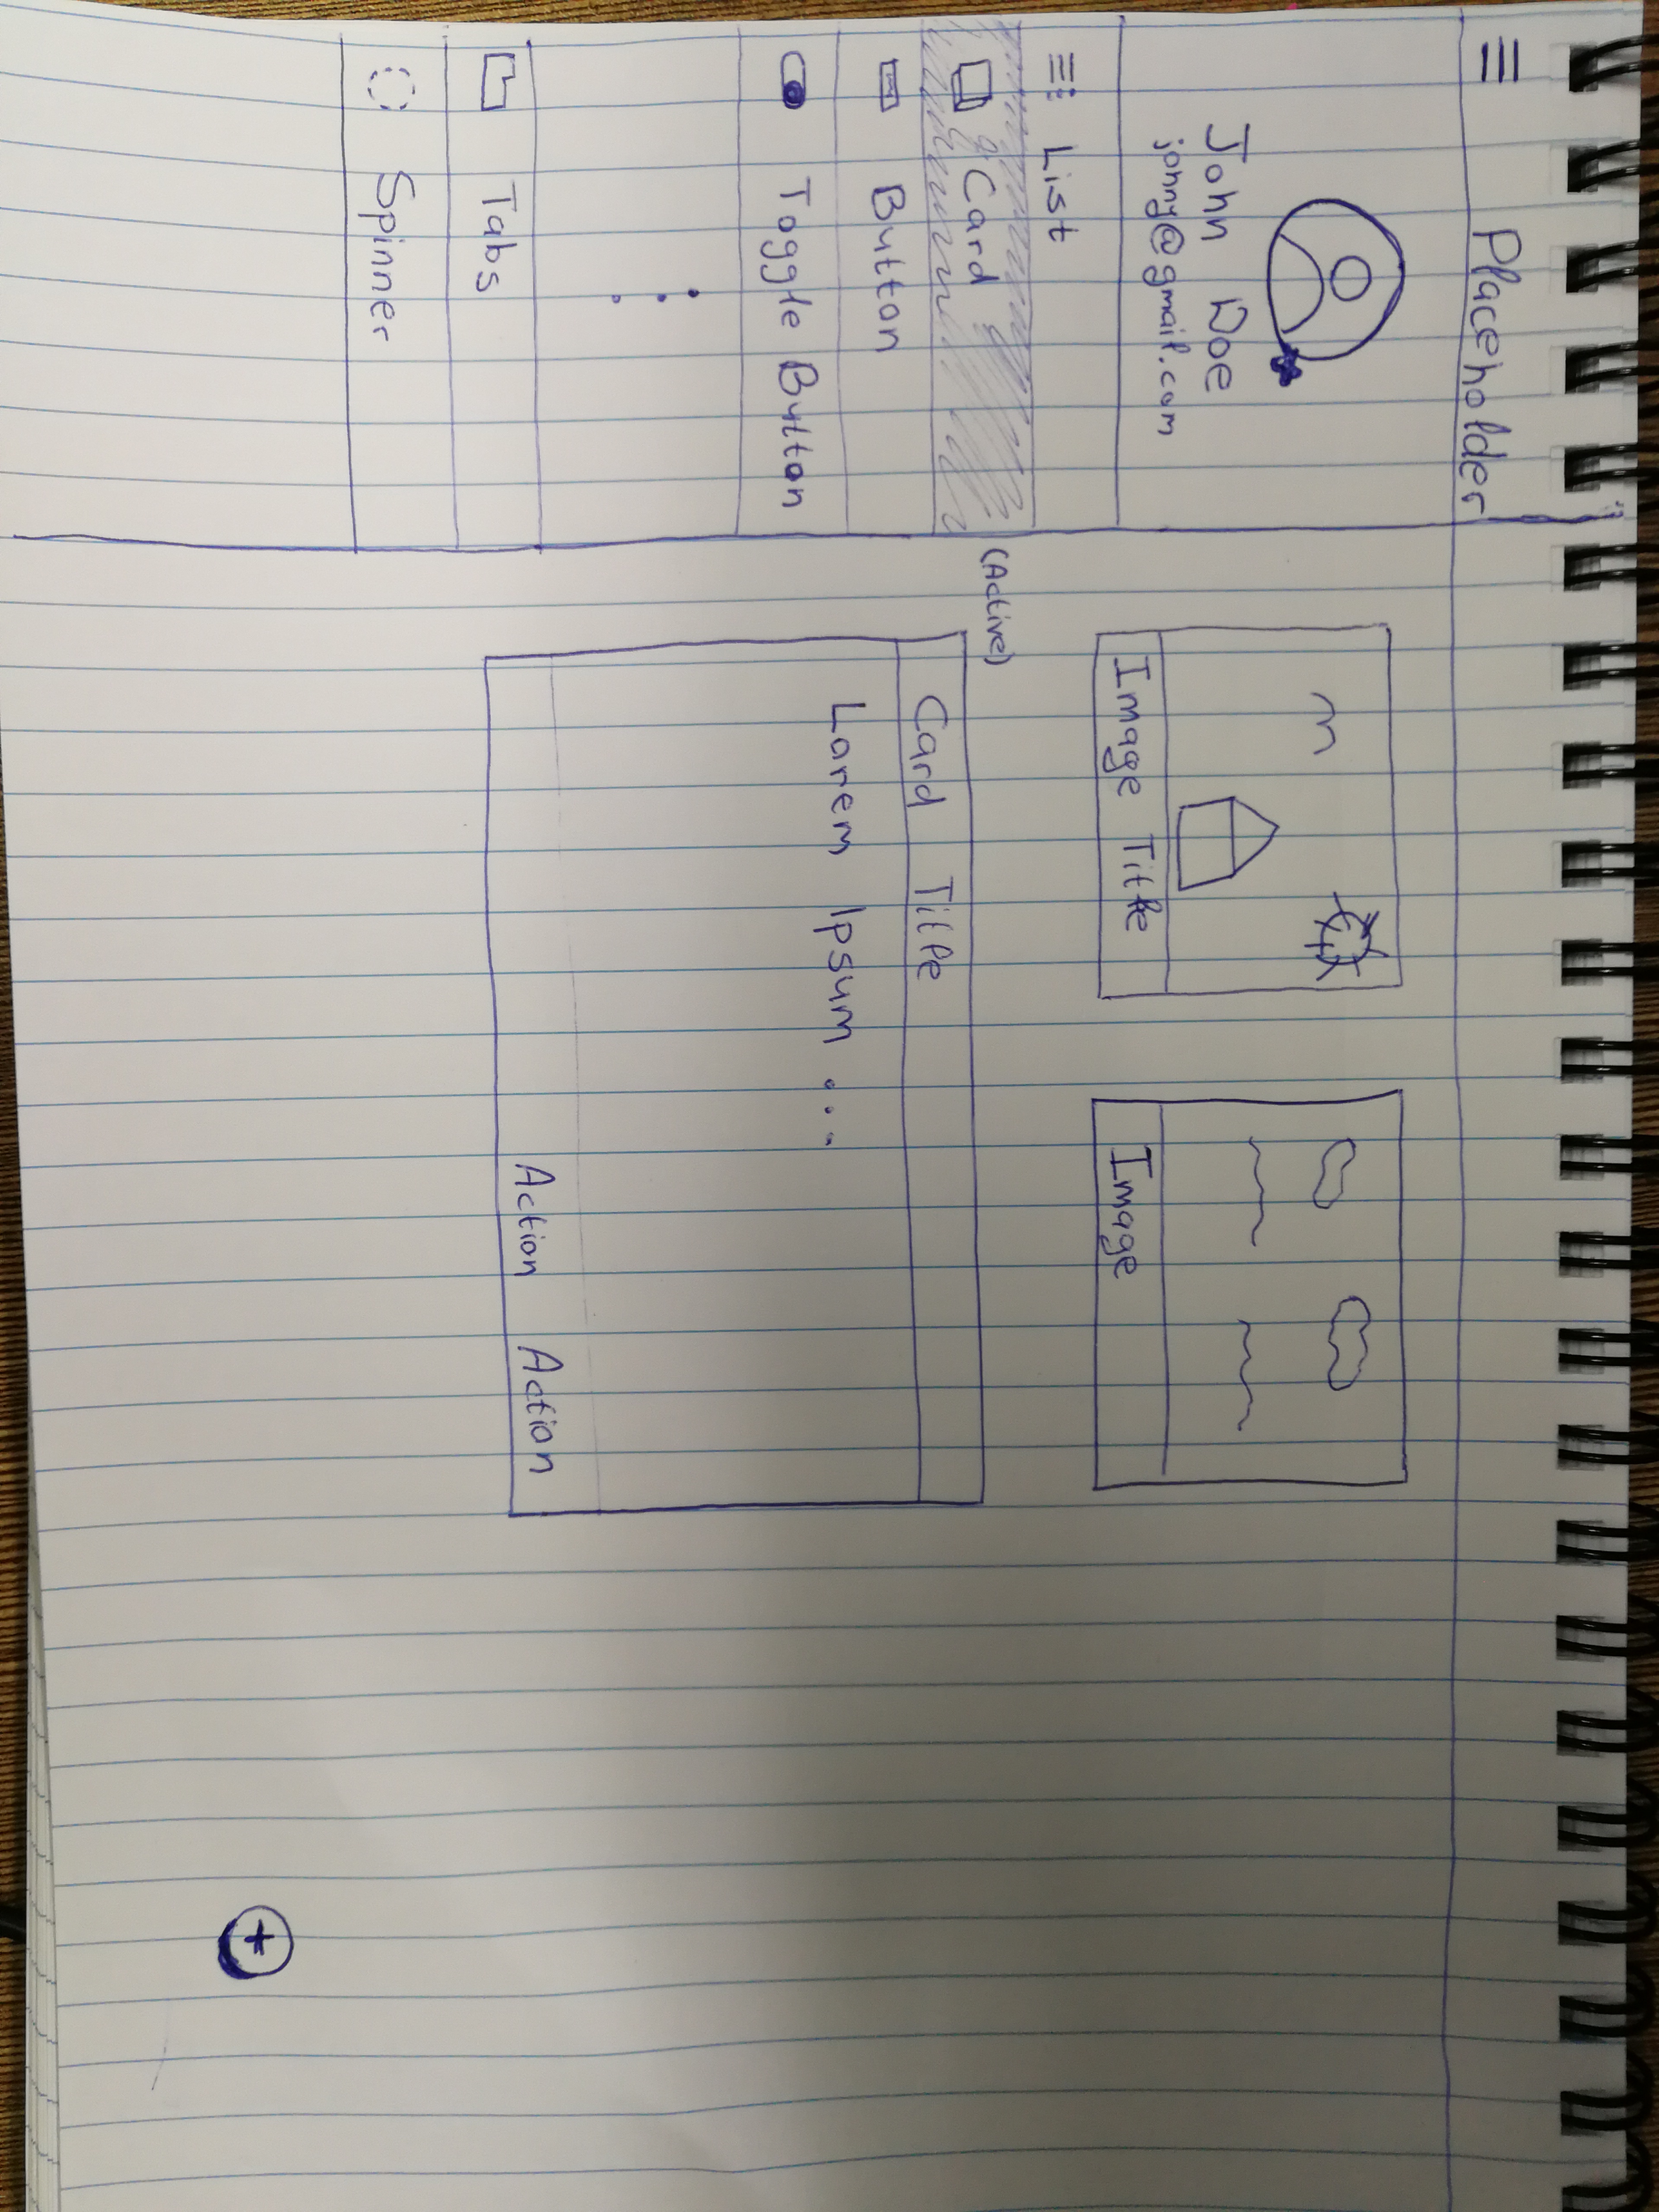 Placeholder
John Doe
johny@gmail.com
List
Card
(Active)
Button
Toggle Button
Tabs
Spinner
Image Title
Image
Card Title
Lorem Ipsum ...
Action Action